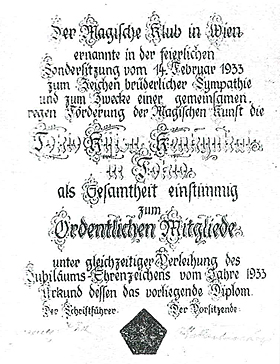 Der Magische Klub in Wien
ernannte in der feierlichen
Sondersitzung vom 14. Februar 1933
zum Zeichen brüderlicher Sympathie
und zum Zwecke einer gemeinsamen
regen Förderung der Magischen Kunst die
in
als Gesamtheit einstimmig
zum
Ordentlichen Mitgliede
unter gleichzeitiger Verleihung des
Jubiläums-Ehrenzeichens vom Jahre 1933
Urkund dessen das vorliegende Diplom.
Der Schriftführer: Der Vorsitzende: